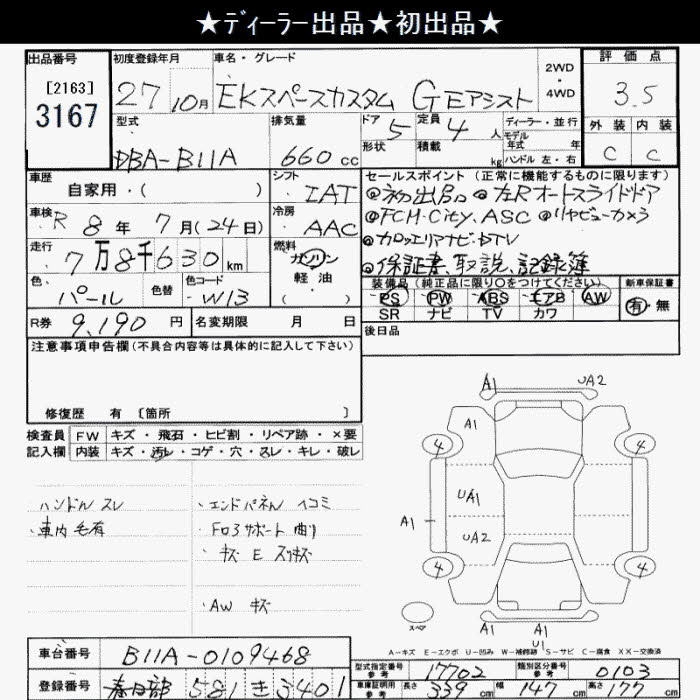 ★ディーラー出品★初出品★
出品番号
[2163]
3167
初度登録年月
27
10月
車名・グレード
EKスペースカスタム GEアシスト
2WD
・
4WD
評価点
3.5
外装
内装
C
C
型式
DBA-B11A
排気量
660cc
ドア
5
形状
定員
4人
積載
kg
ディーラー・並行
モデル
年式
年
ハンドル 左・右
車歴
自家用・(　　)
シフト
IAT
セールスポイント(正常に機能するものに限ります)
◎初出品 ◎左Rオートスライドドア
◎FCM・City.ASC ◎リヤビューカメラ
◎カロッツェリアナビ・DTV
◎保証書、取説、記録簿
車検
R 8年 7月(24日)
冷房
AAC
走行
7万8千630km
燃料
ガソリン
軽油
(　　)
色
パール
色替
色コード
W13
装備品(純正品に限り○をつけてください)
PS PW ABS エアB AW
SR ナビ TV カワ
新車保証書
有・無
R券
9,190円
名変期限 月 日
後日品
注意事項申告欄(不具合内容等は具体的に記入して下さい)
修復歴 有 〔箇所 〕
検査員
記入欄
FW キズ・飛石・ヒビ割・リペア跡・×要
内装 キズ・汚レ・コゲ・穴・スレ・キレ・破レ
ハンドル スレ
・車内 毛有
・エンドパネル ヘコミ
・Fロアサポート 曲り
・キズ E スリキズ
・AW キズ
A1
UA2
A1
4
4
UA1
A1
UA2
4
4
スペア
A1
A1
U1
A-キズ E-エクボ U-凹み W-補修跡 S-サビ C-腐食 XX-交換済
車台番号
B11A-0109468
登録番号
春日部 581 き 3401
型式指定番号
参考
17702
類別区分番号
参考
0103
車庫証明用
参考
長さ
339cm
幅
147cm
高さ
177cm